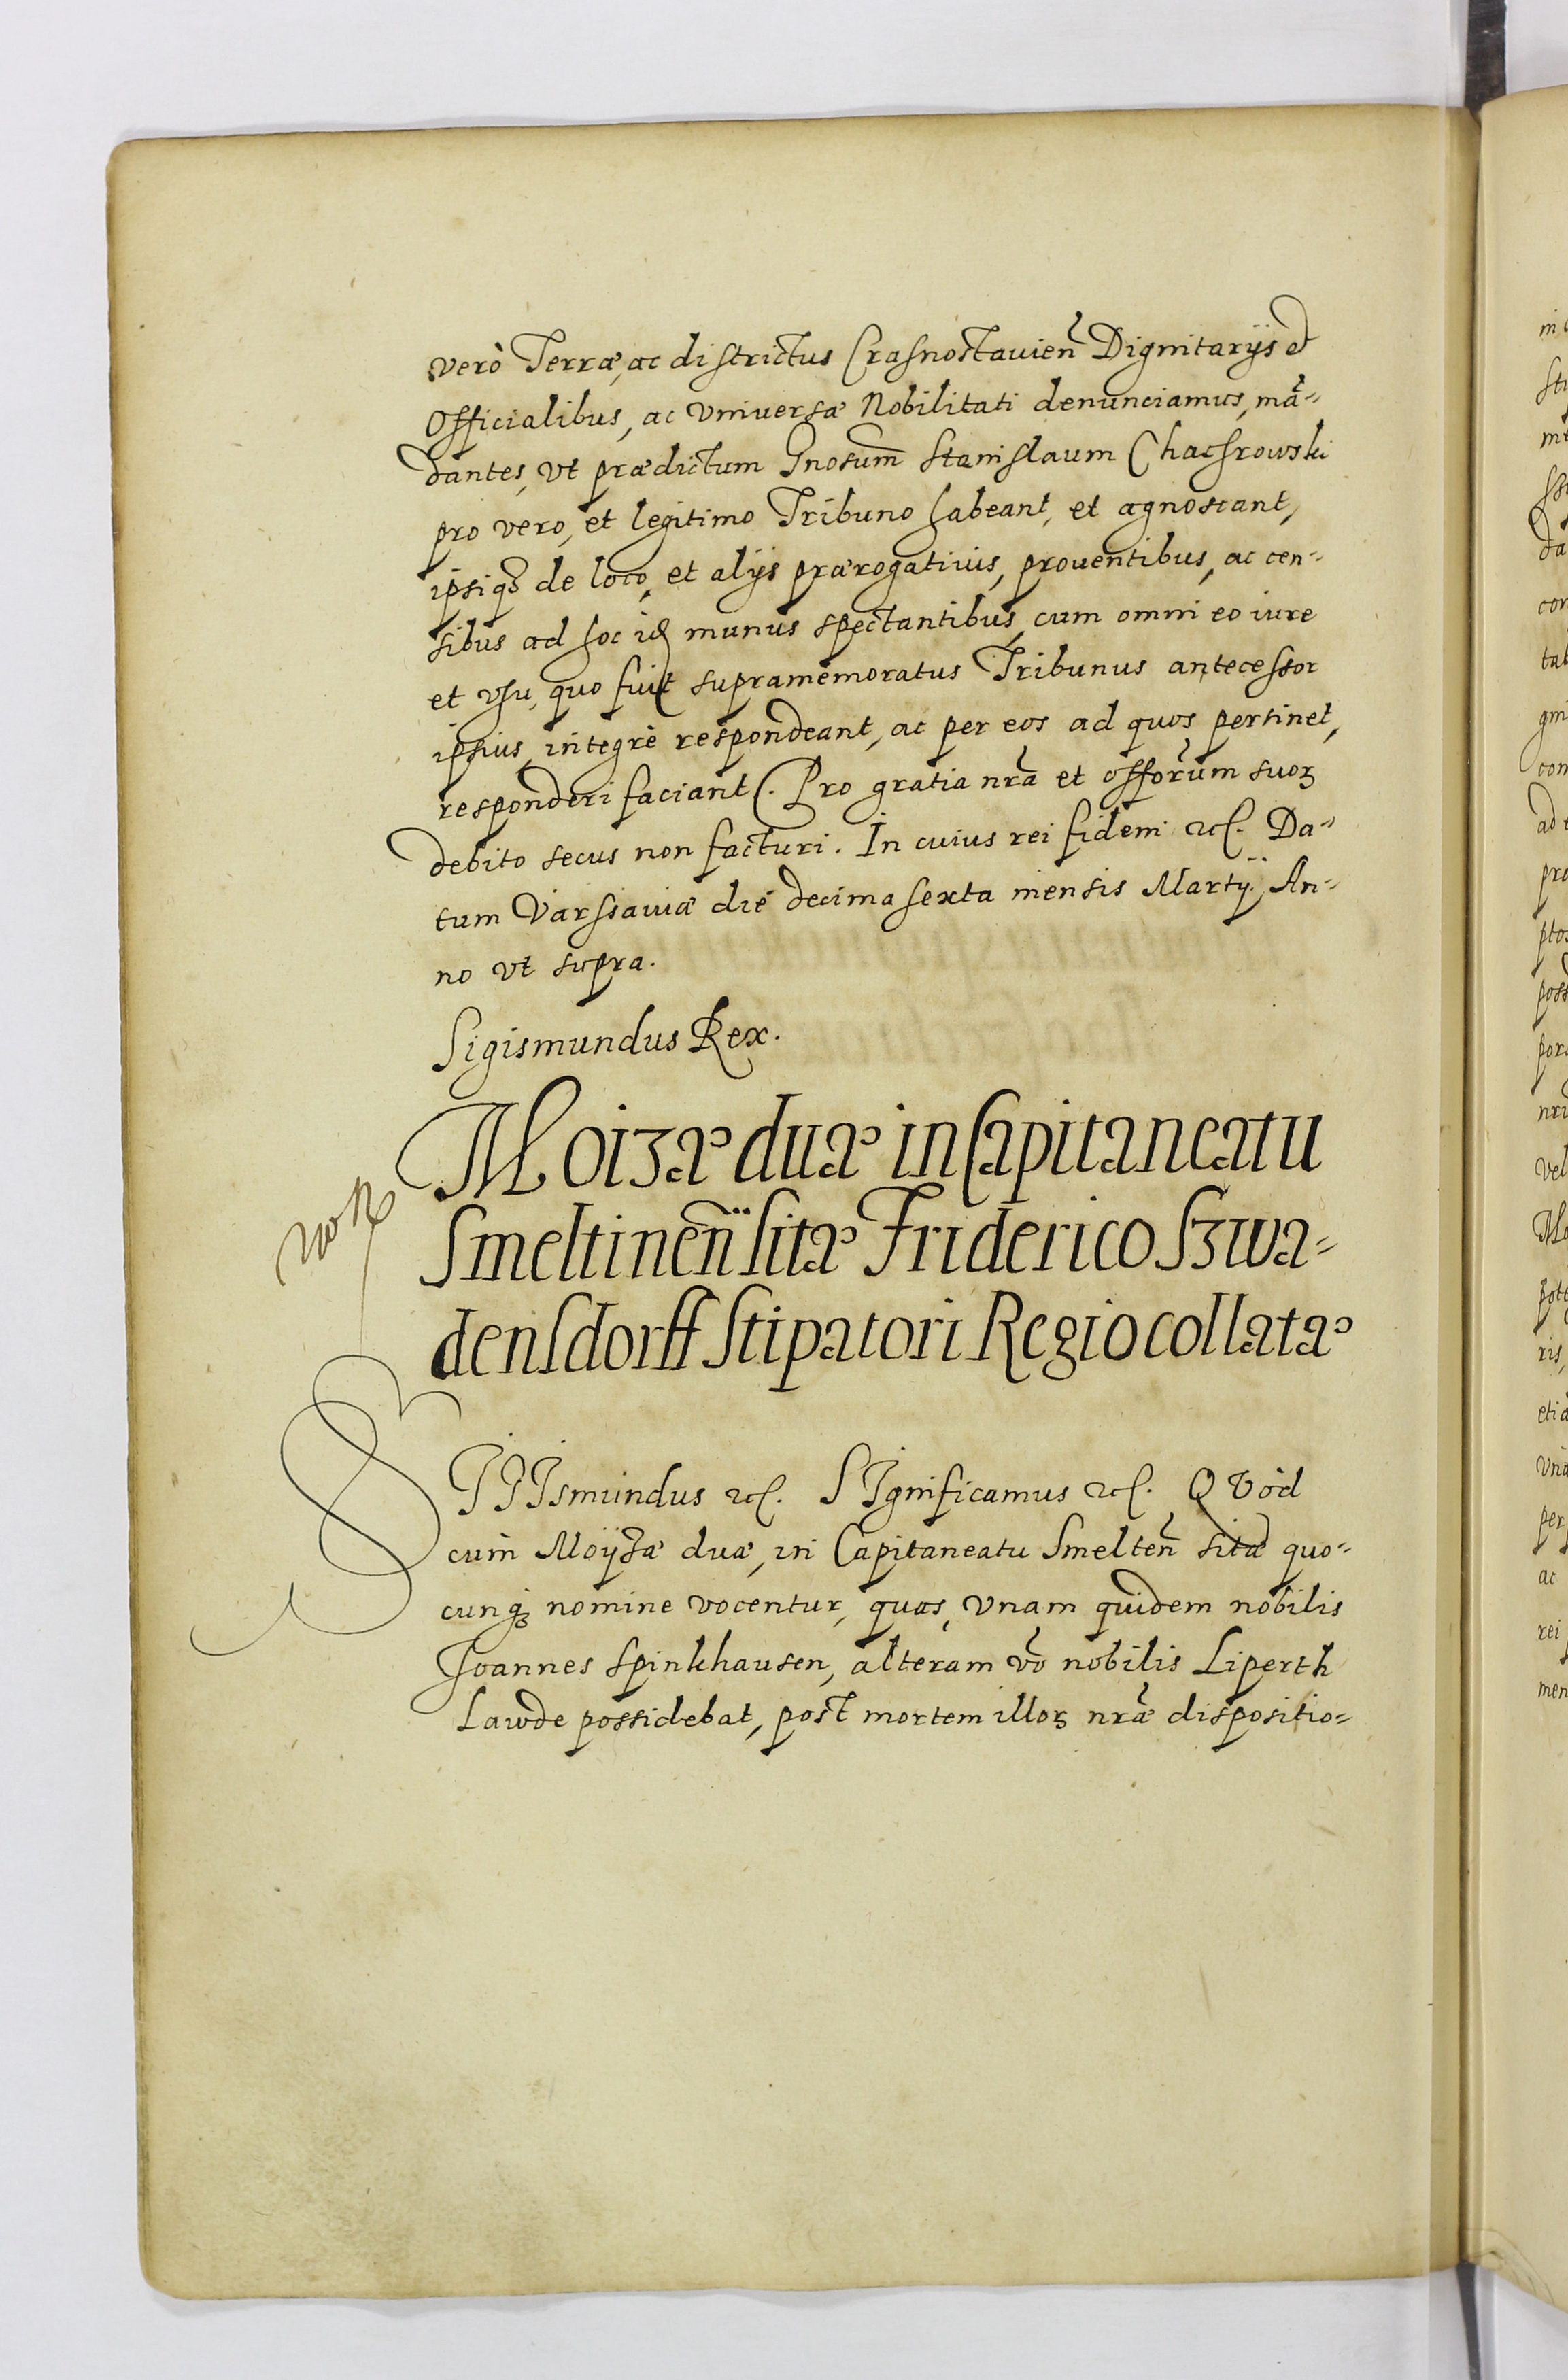 verò Terræ, ac districtus Crasnostauien̄ Dignitarijs et
Officialibus, ac vniversæ Nobilitati denunciamus, mā-
dantes, vt prædictum Gnosum̄ Stanislaum
pro vero, et legitimo Tribuno habeant, et agnoscant,
ipsiq3 de loco, et alijs prærogativis, proventibus, ac cen-
sibus ad hoc id munus spectantibus, cum omni eo iure
et vsu, quo fuit supramemoratus Tribunus antecessor
ipsius, integrè respondeant, ac per eos ad quos pertinet,
responderi faciant. Pro gratia nr̄a et offōrum suoꝝ
debito secus non facturi. In cuius rei fidem etc. Da-
tum Varssaviæ die decima sexta mensis Martij. An-
no vt supra.
Sigismundus Rex.
Moizæ duæ in Capitaneatu
Smeltinen̄ sitæ Friderico Szwa-
densdorff Stipatori Regio collatæ
SIGIsmundus etc. SIgnificamus etc. QVòd
cùm Moyzæ duæ, in Capitaneatu Smelten̄ sitæ quo-
cunq3 nomine vocentur, quas, vnam quidem nobilis
Joannes Spinkhausen, alteram vō nobilis Liperth
Lawde possidebat, post mortem illoꝝ nr̄æ dispositio-